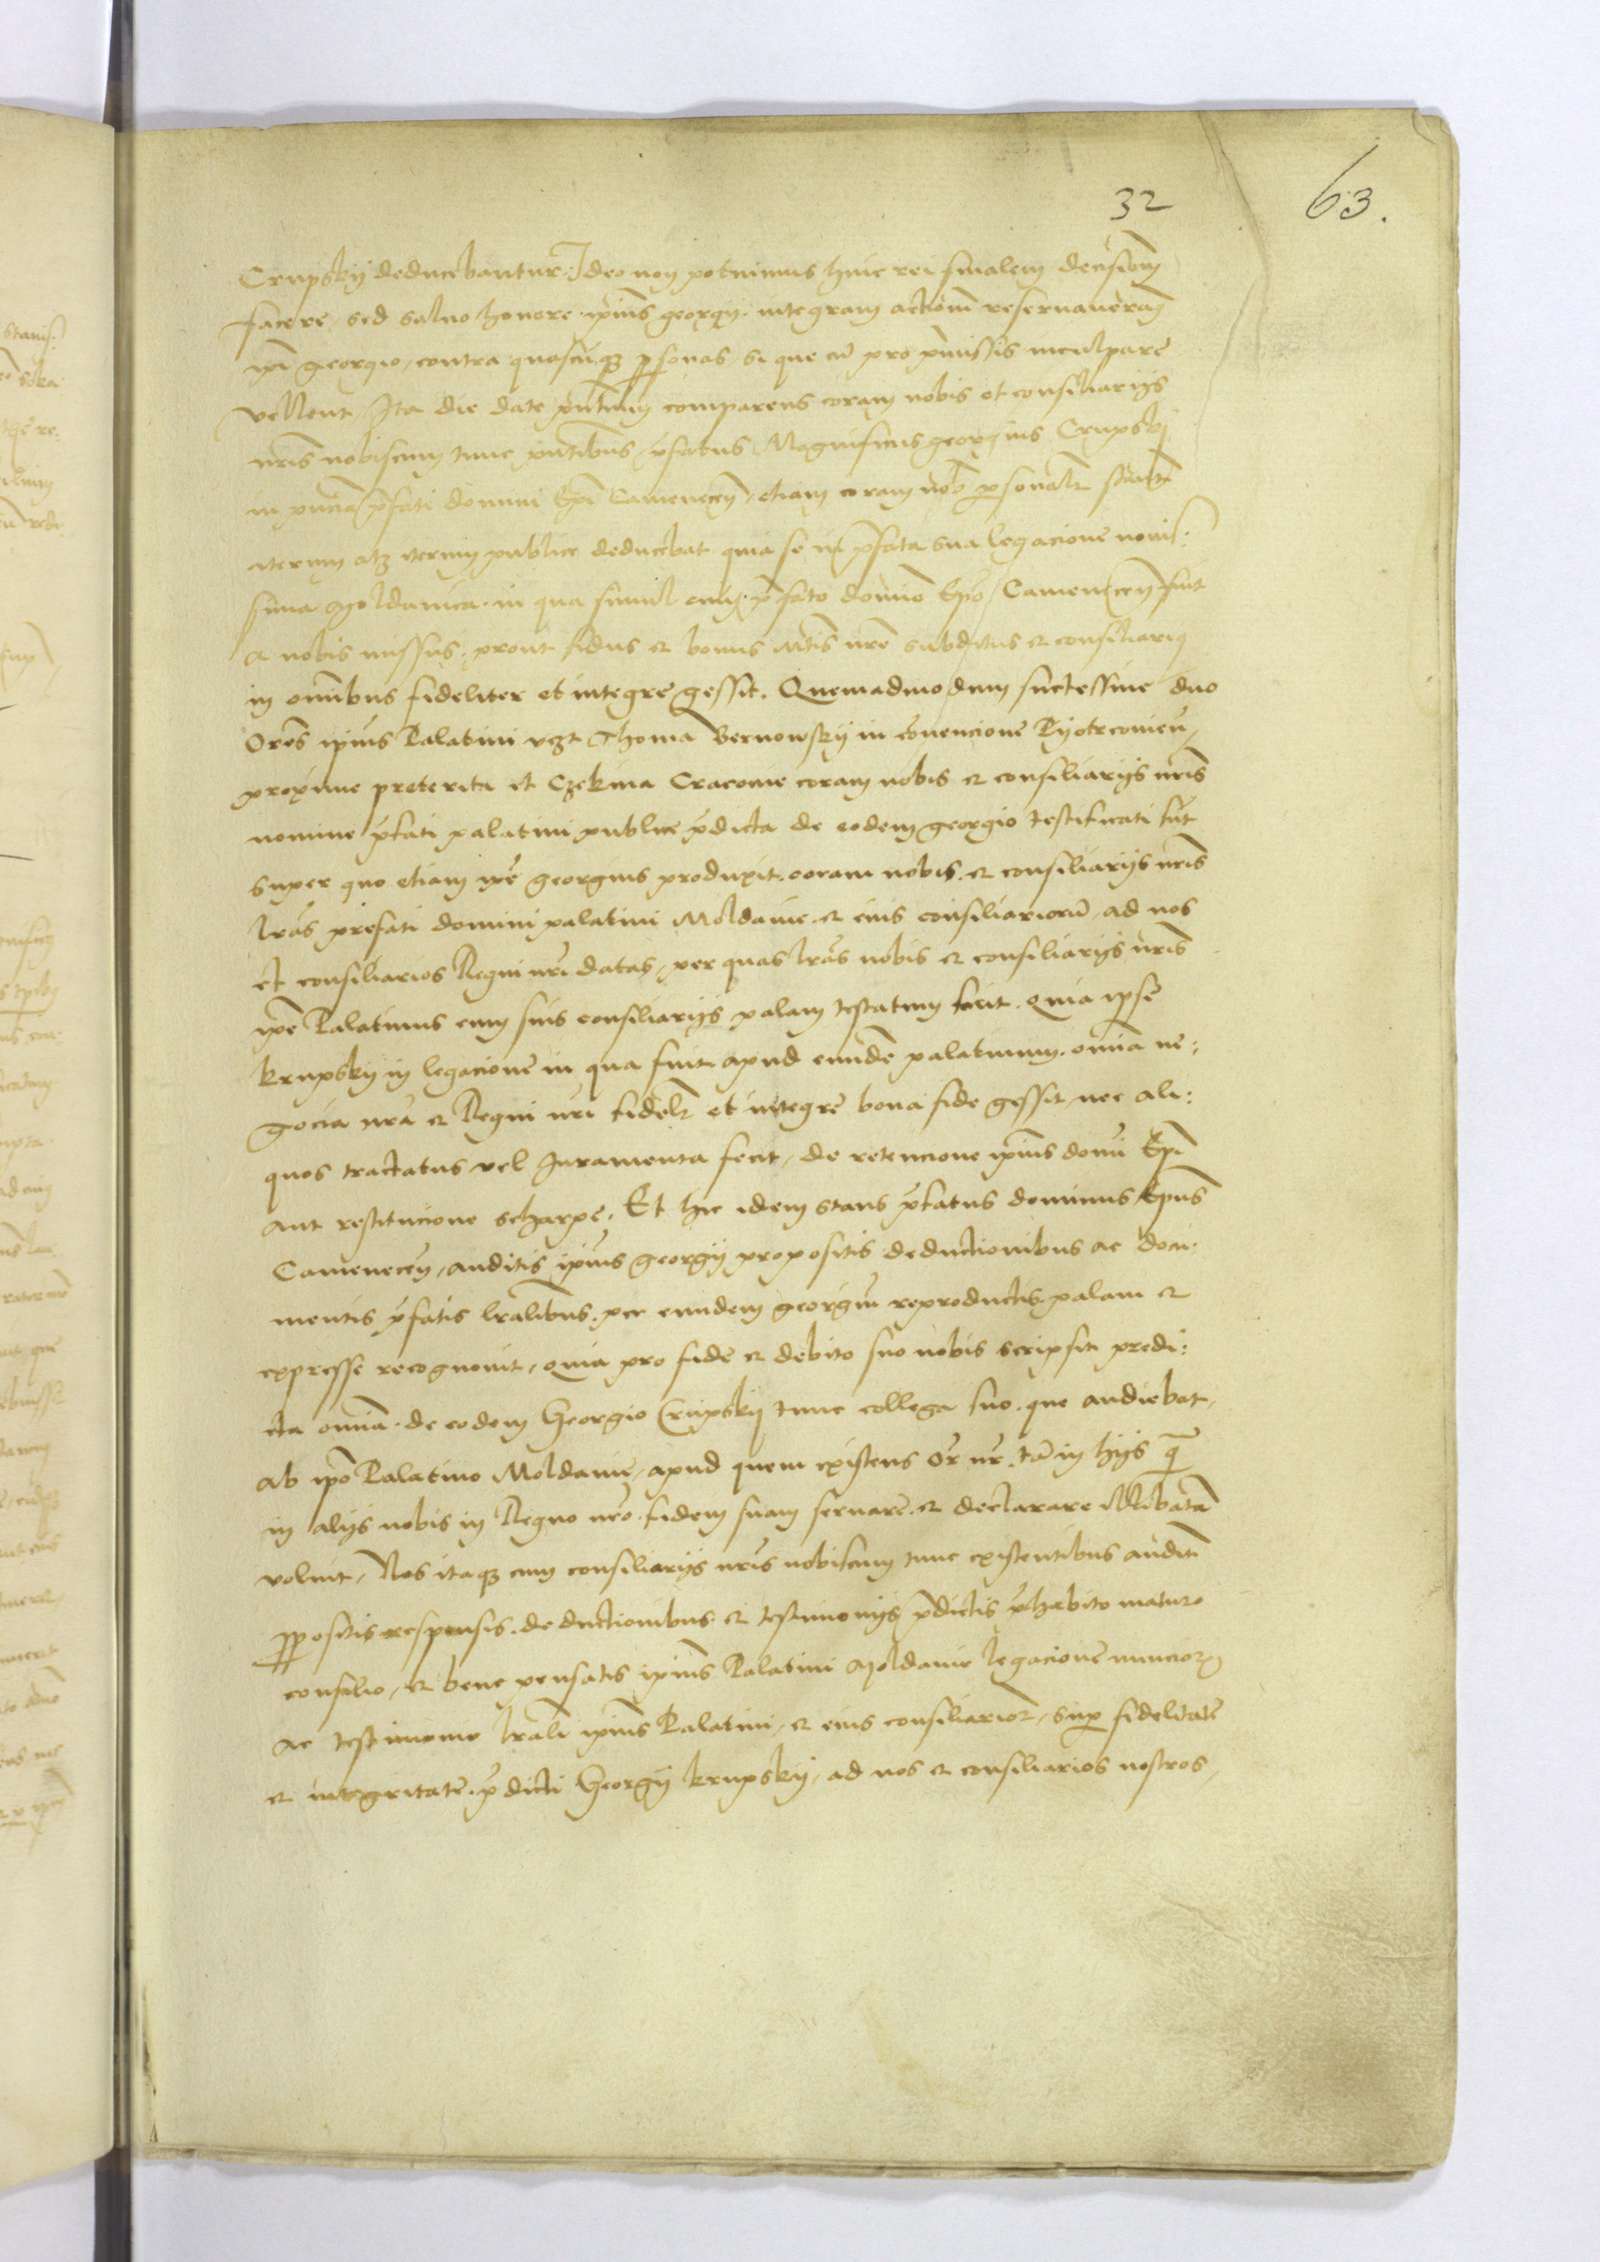 32
63.
Crupskij deducebantur. Ideo non potuimus huic rei finalem decisionē
facere, sed salvo honore ip̄ius georgij integram actionē reservaveram9
ip̄i georgio, contra quascūq3 p̱sonas si que eū pro p̄missis inculpare
vellent. Ita die date pn̄tium comparens coram nobis et consiliarijs
nr̄is nobiscum tunc pn̄tibus, p̄fatus Magnificus georgius Crupskj
in pn̄cia p̄fati domini Ep̄i Camenecen̄, etiam coram nob̄ personalr̄ stant̄
iterum atq3 iterum publice deducebat quia se in p̄fata sua legacione novis:
sima Moldavica in qua simul cum p̄fato domino Ep̄o Camenecen̄ fuit
a nobis missus, prout fidus et bonus Mt̄is nr̄e subditus et consiliarius
in omnibus fideliter et integre gessit. Quemadmodum successive duo
Or̄es ip̄ius Palatini vz̄t Thoma Bernowskij in cōvencione Pyotrcovien̄
proxime preterita et Czekina Cracovie coram nobis et consiliarijs nr̄is
nomine p̄fati palatini publice p̄dicta de eodem georgio testificati sūt
super quo etiam ip̄e georgius produxit coram nobis et consiliarijs nr̄is
lr̄as prefati domini palatini Moldavie et eius consiliariorū, ad nos
et consiliarios Regni nr̄i datas, per quas lr̄as nobis et consiliarijs nr̄is
ip̄e Palatinus cum suis consiliarijs palam testatum facit quia ipse
krupskij in legacione in qua fuit apud eundē palatinum omnia ne:
gocia nr̄a et Regni nr̄i fidelr̄ et integre bona fide gessit, nec ali:
quos tractatus vel Iuramenta fecit, de retencione ip̄ius domi Ep̄i
aut restitucione scharpe. Et hic idem stans p̄fatus dominus Ep̄us
Camenecen̄, auditis ip̄ius georgij propositis deductionibus ac docu:
mentis p̄fatis lr̄alibus per eundem georgiū reproductis palam et
expresse recognovit, quia pro fide et debito suo nobis scripsit predi:
cta omnia de eodem Georgio Crupskij tunc collega suo que audiebat,
ab ip̄o Palatino Moldavie, apud quem existens Or̄ nr̄ tā in hijs q̄
in alijs nobis in Regno nr̄o fidem suam servare et declarare illibatā
voluit, Nos itaq3 cum consiliarijs nr̄is nobiscum tunc existentibus audit̄
p̱positis responsis deductionibus et testimonijs p̄dictis p̄habito maturo
consilio, et bene pensatis ip̄ius Palatini Moldavie legacione nuncior
ac testimonio lr̄ali ip̄ius Palatini, et eius consiliarior, sup fidelitate
et integritate p̄dicti Georgij krupskij, ad nos et consiliarios nostros,